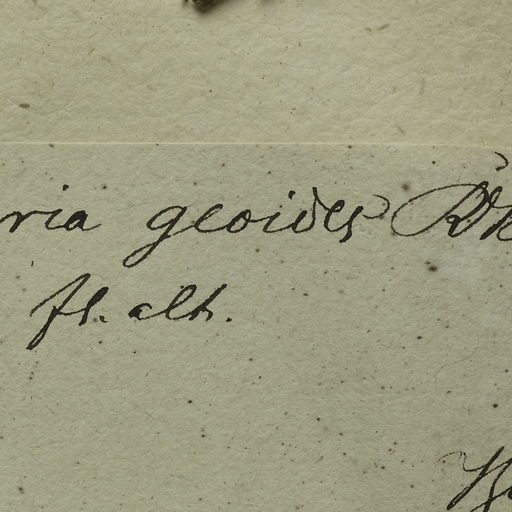 ria geoides
fl. alb.